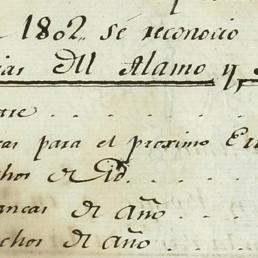 1802 se reconocio
ias Dll Alamo y,
are . . . . .
cas para el proximo En
chos de Id. . . .
ancas de año . . .
chos de año